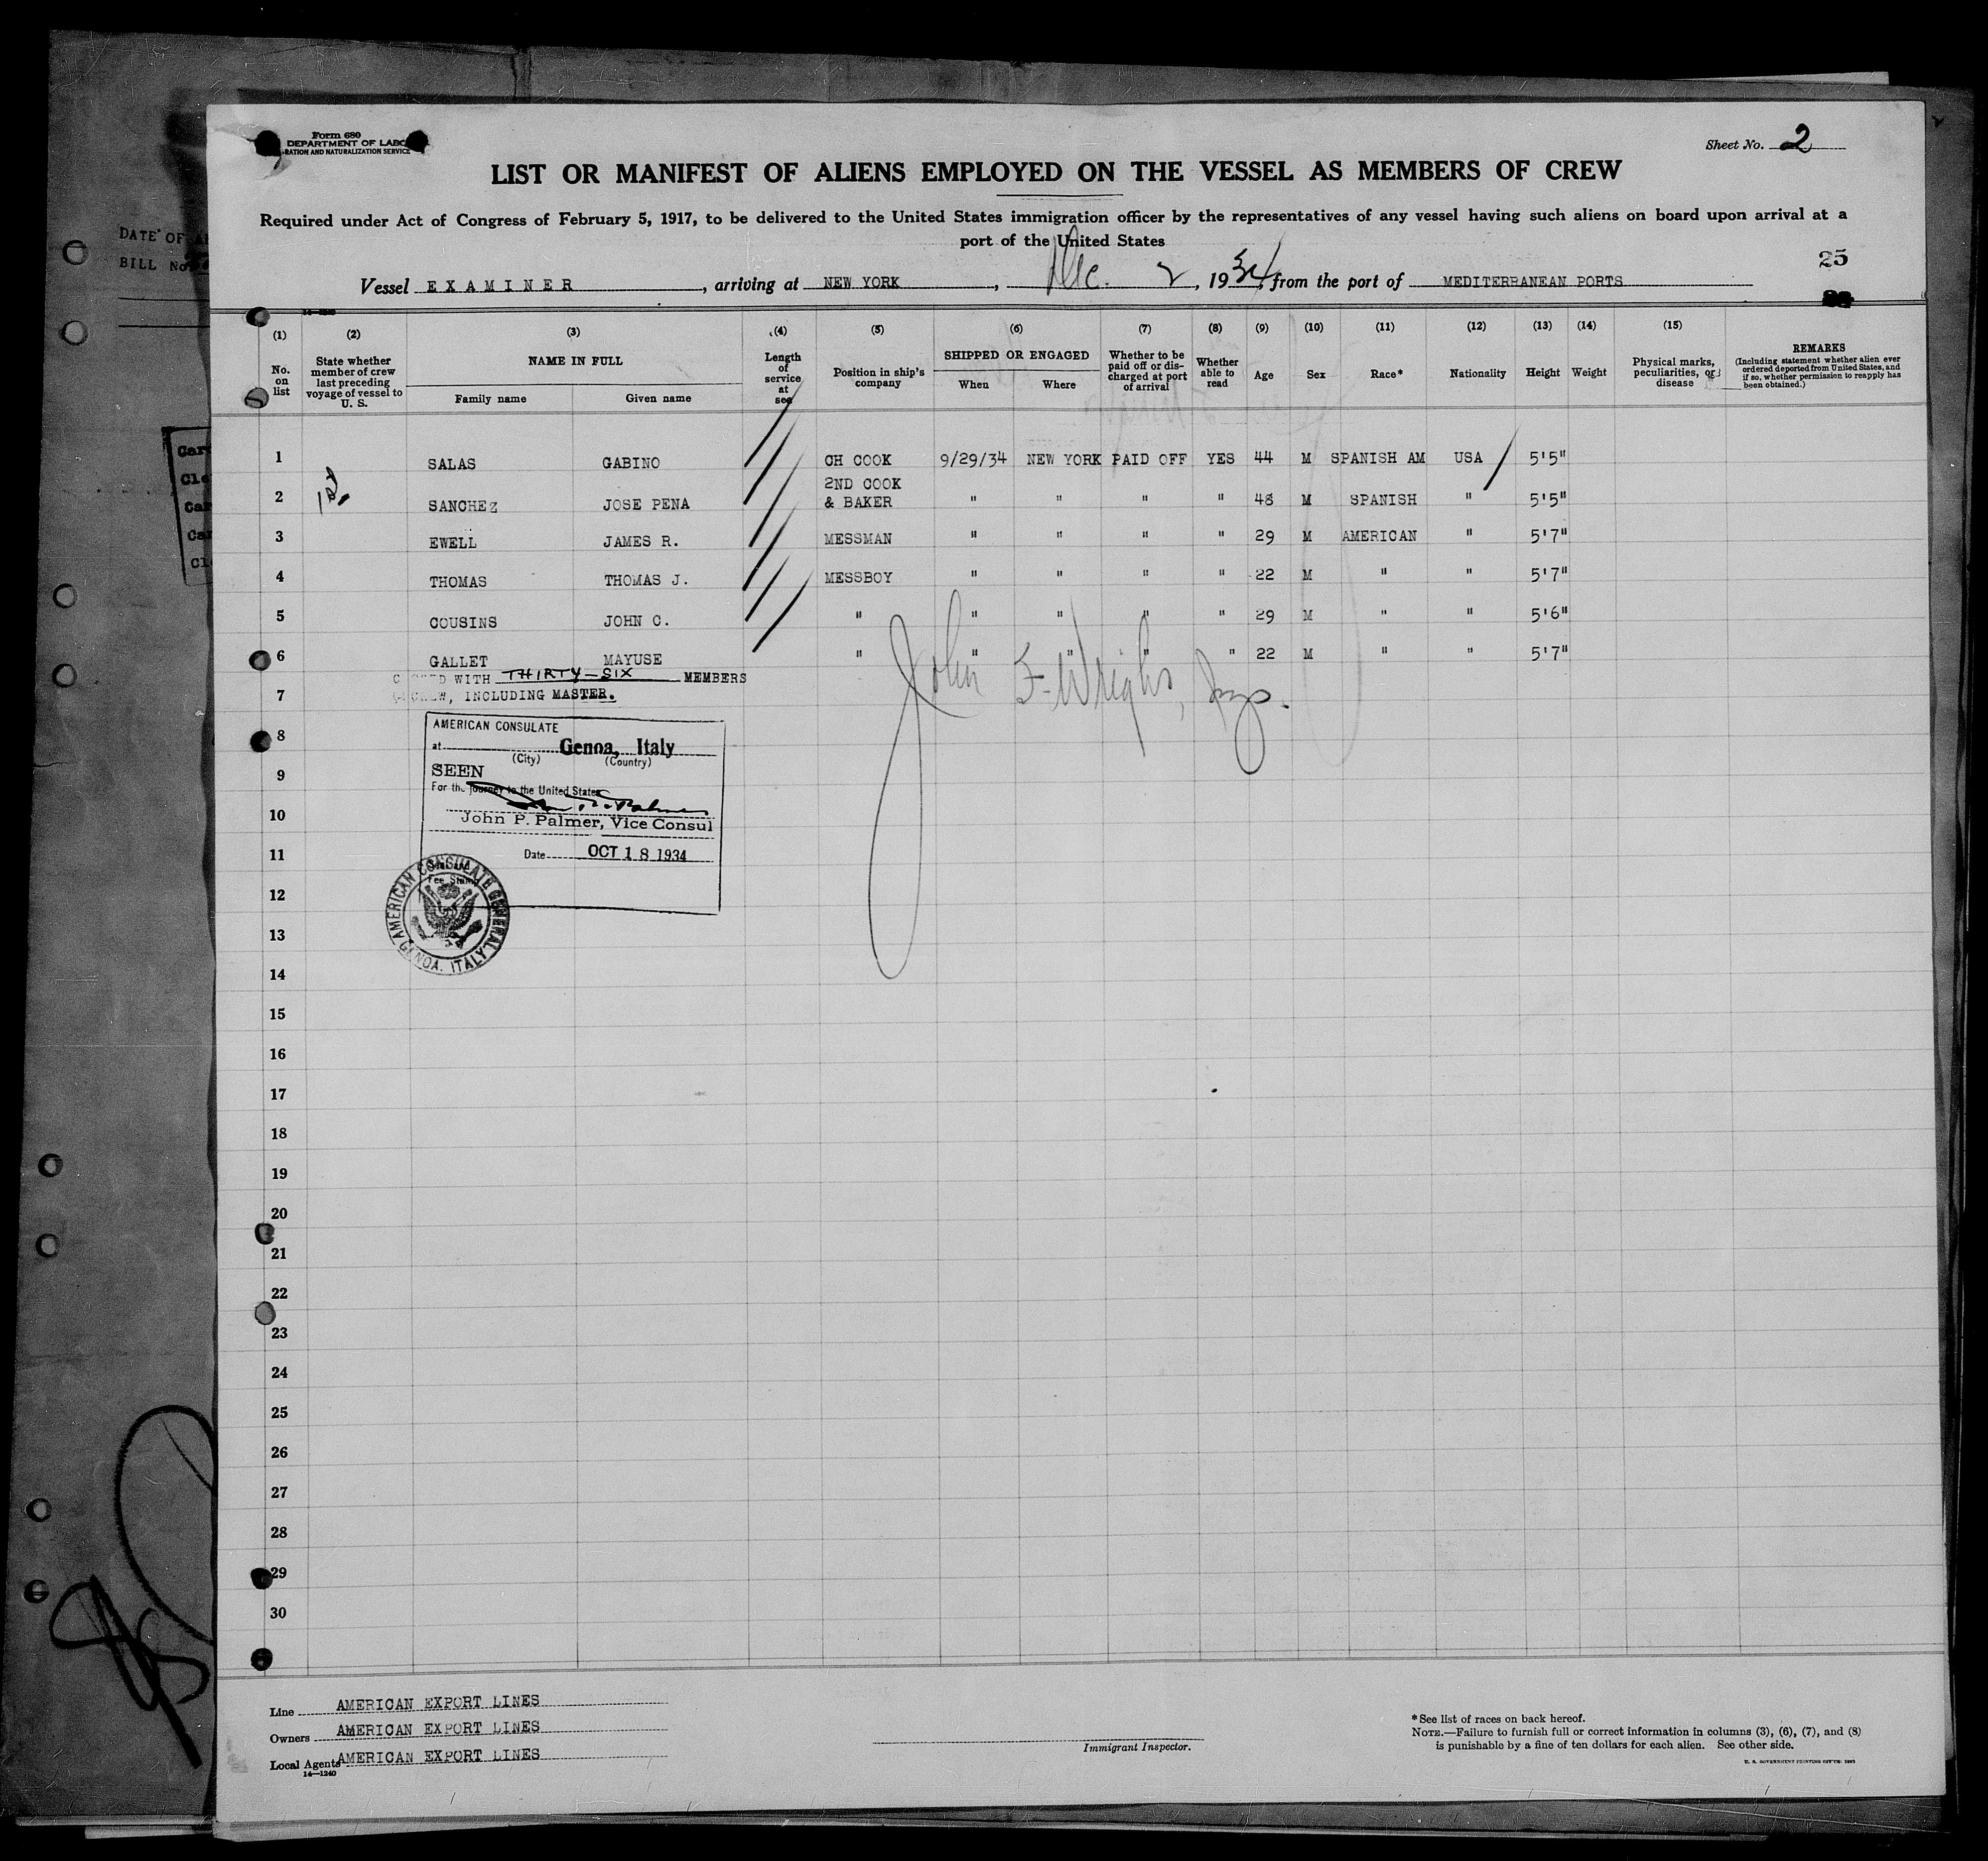 Form 680
DEPARTMENT OF LABO
RATION AND NATURALIZATION SERVICE
Sheet No. 2
LIST OR MANIFEST OF ALIENS EMPLOYED ON THE VESSEL AS MEMBERS OF CREW
Required under Act of Congress of February 5, 1917, to be delivered to the United States immigration officer by the representatives of any vessel having such aliens on board upon arrival at a
port of the United States
25
DATE OF
BILL No
Vessel EXAMINER, arriving at NEW YORK, Dec. 2, 1934, from the port of MEDITERRANEAN PORTS
(1) (2) (3) (4) (5) (6) (7) (8) (9) (10) (11) (12) (13) (14) (15)
No. on list
State whether member of crew last preceding voyage of vessel to U. S.
NAME IN FULL
Family name Given name
Length of service at sea
Position in ship's company
SHIPPED OR ENGAGED
When Where
Whether to be paid off or discharged at port of arrival
Whether able to read
Age Sex Race* Nationality Height Weight
Physical marks, peculiarities, or disease
REMARKS
(Including statement whether alien ever ordered deported from United States, and if so, whether permission to reapply has been obtained.)
1 SALAS GABINO CH COOK 9/29/34 NEW YORK PAID OFF YES 44 M SPANISH AM USA 5'5"
1st
2 SANCHEZ JOSE PENA 2ND COOK & BAKER " " " " 48 M SPANISH " 5'5"
3 EWELL JAMES R. MESSMAN " " " " 29 M AMERICAN " 5'7"
4 THOMAS THOMAS J. MESSBOY " " " " 22 M " " 5'7"
5 COUSINS JOHN C. " " " " " 29 M " " 5'6"
6 GALLET MAYUSE " " " " " 22 M " " 5'7"
WITH THIRTY-SIX MEMBERS
7 CREW, INCLUDING MASTER.
John F. Wright, Insp.
AMERICAN CONSULATE
8
at Genoa, Italy
(City) (Country)
9 SEEN
For the journey to the United States
10
John P. Palmer, Vice Consul
11 Date OCT 18 1934
Fee Stamp
AMERICAN CONSULATE GENERAL
GENOA, ITALY
12
13
14
15
16
17
18
19
20
21
22
23
24
25
26
27
28
29
30
Line AMERICAN EXPORT LINES
Owners AMERICAN EXPORT LINES
Local Agents AMERICAN EXPORT LINES
14—1240
Immigrant Inspector.
*See list of races on back hereof.
NOTE.—Failure to furnish full or correct information in columns (3), (6), (7), and (8)
is punishable by a fine of ten dollars for each alien. See other side.